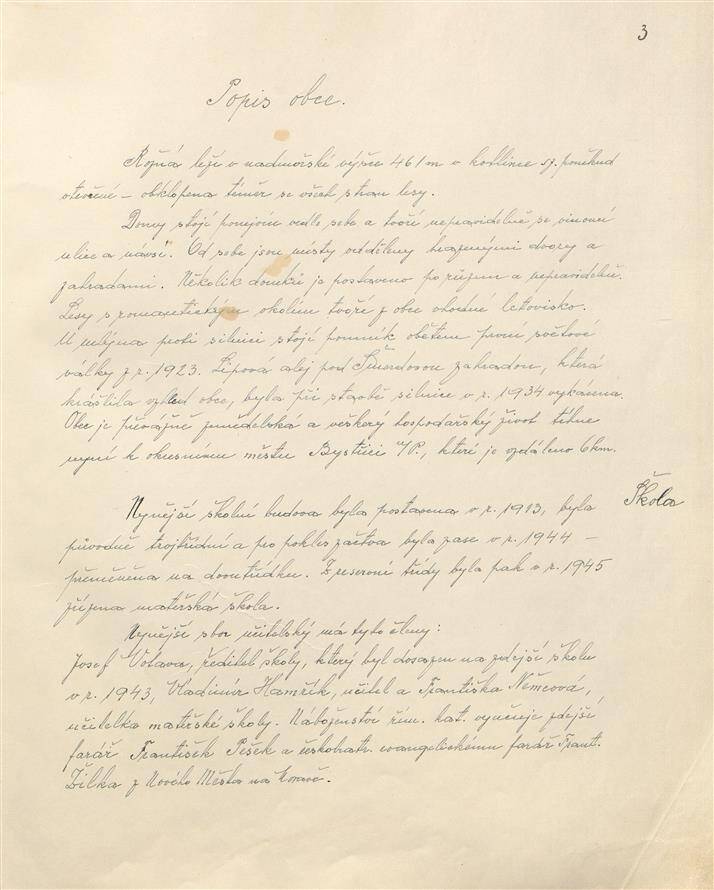 3
Popis obce.
Rožná leží v nadmořské výšce 461 m v kotlince sz. poněkud
otevřené – obklopena téměř se všech stran lesy.
Domy stojí ponejvíce vedle sebe a tvoří nepravidelně se vinoucí
ulice a návsi. Od sebe jsou místy odděleny hrazenými dvory a
zahradami. Několik domků je postaveno po různu a nepravidelně.
Lesy s romantickým okolím tvoří z obce vhodné letovisko.
U mlýna proti silnici stojí pomník obětem první světové
války z r. 1923. Lipová alej pod zahradou, která
krášlila vzhled obce, byla při stavbě silnice v r. 1934 vykácena.
Obec je převážně zemědělská a veškerý hospodářský život tíhne
nyní k okresnímu městu Bystřici n/P., které je vzdáleno 6 km.
Škola
Nynější školní budova byla postavena v r. 1913, byla
původně trojtřídní a pro pokles žactva byla zase v r. 1944 –
přeměněna na dvoutřídku. Z reservní třídy byla pak v r. 1945
zřízena mateřská škola.
Nynější sbor učitelský má tyto členy:
Josef Votava, ředitel školy, který byl dosazen na zdejší školu
v r. 1943, Vladimír Hamřík, učitel a Františka Němcová,
učitelka mateřské školy. Náboženství řím. kat. vyučuje zdejší
farář František Pešek a českobratr. evangelickému farář Frant.
Žilka z Nového Města na Moravě.